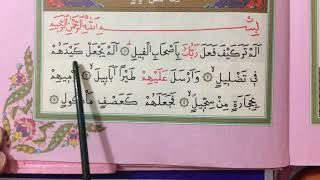 بِسْمِ اللّٰهِ الرَّحْمٰنِ الرَّحِيمِ
اَلَمْ تَرَ كَيْفَ فَعَلَ رَبُّكَ بِاَصْحَابِ الْفِيلِ ۞ اَلَمْ يَجْعَلْ كَيْدَهُمْ
فِي تَضْلِيلٍ ۞ وَاَرْسَلَ عَلَيْهِمْ طَيْرًا اَبَابِيلَ ۞ تَرْمِيهِمْ
بِحِجَارَةٍ مِنْ سِجِّيلٍ ۞ فَجَعَلَهُمْ كَعَصْفٍ مَأْكُولٍ ۞